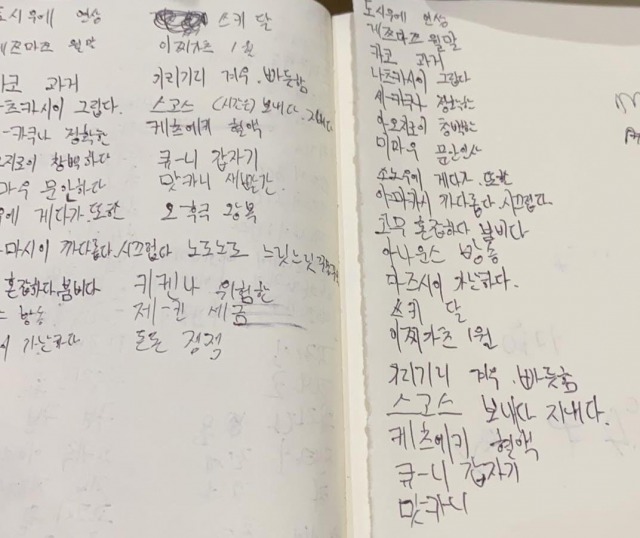 도시우에 연상
스키 달
게츠마츠 월말
이찌가츠 1월
카코 과거
키리기리 겨우.빠듯함
츠카시이 그립다.
스고스 (시간을) 보내다. 지내다
-카쿠나 정확한
케츠에키 혈액
지로이 창백하다
큐-니 갑자기
마우 문안하다
맛카니 새빨간.
우에 게다가.또한
오-후쿠 왕복
마시이 까다롭다.시끄럽다
노로노로 느릿느릿
혼잡하다.붐비다
키켄나 위험한
방송
제-킨 세금
가난하다
돈돈 점점
도시우에 연상
게츠마츠 월말
카코 과거
나츠카시이 그립다
세-카쿠나 정확한
아오지로이 창백한
미마우 문안인사
소노우에 게다가.또한
야까마시 까다롭다.시끄럽다.
코무 혼잡하다 붐비다
아나운스 방송
마즈시이 가난하다.
쓰키 달
이찌가츠 1월
키리기리 겨우.빠듯함
스고스 보내다 지내다.
케츠에키 혈액
큐-니 갑자기
맛카니